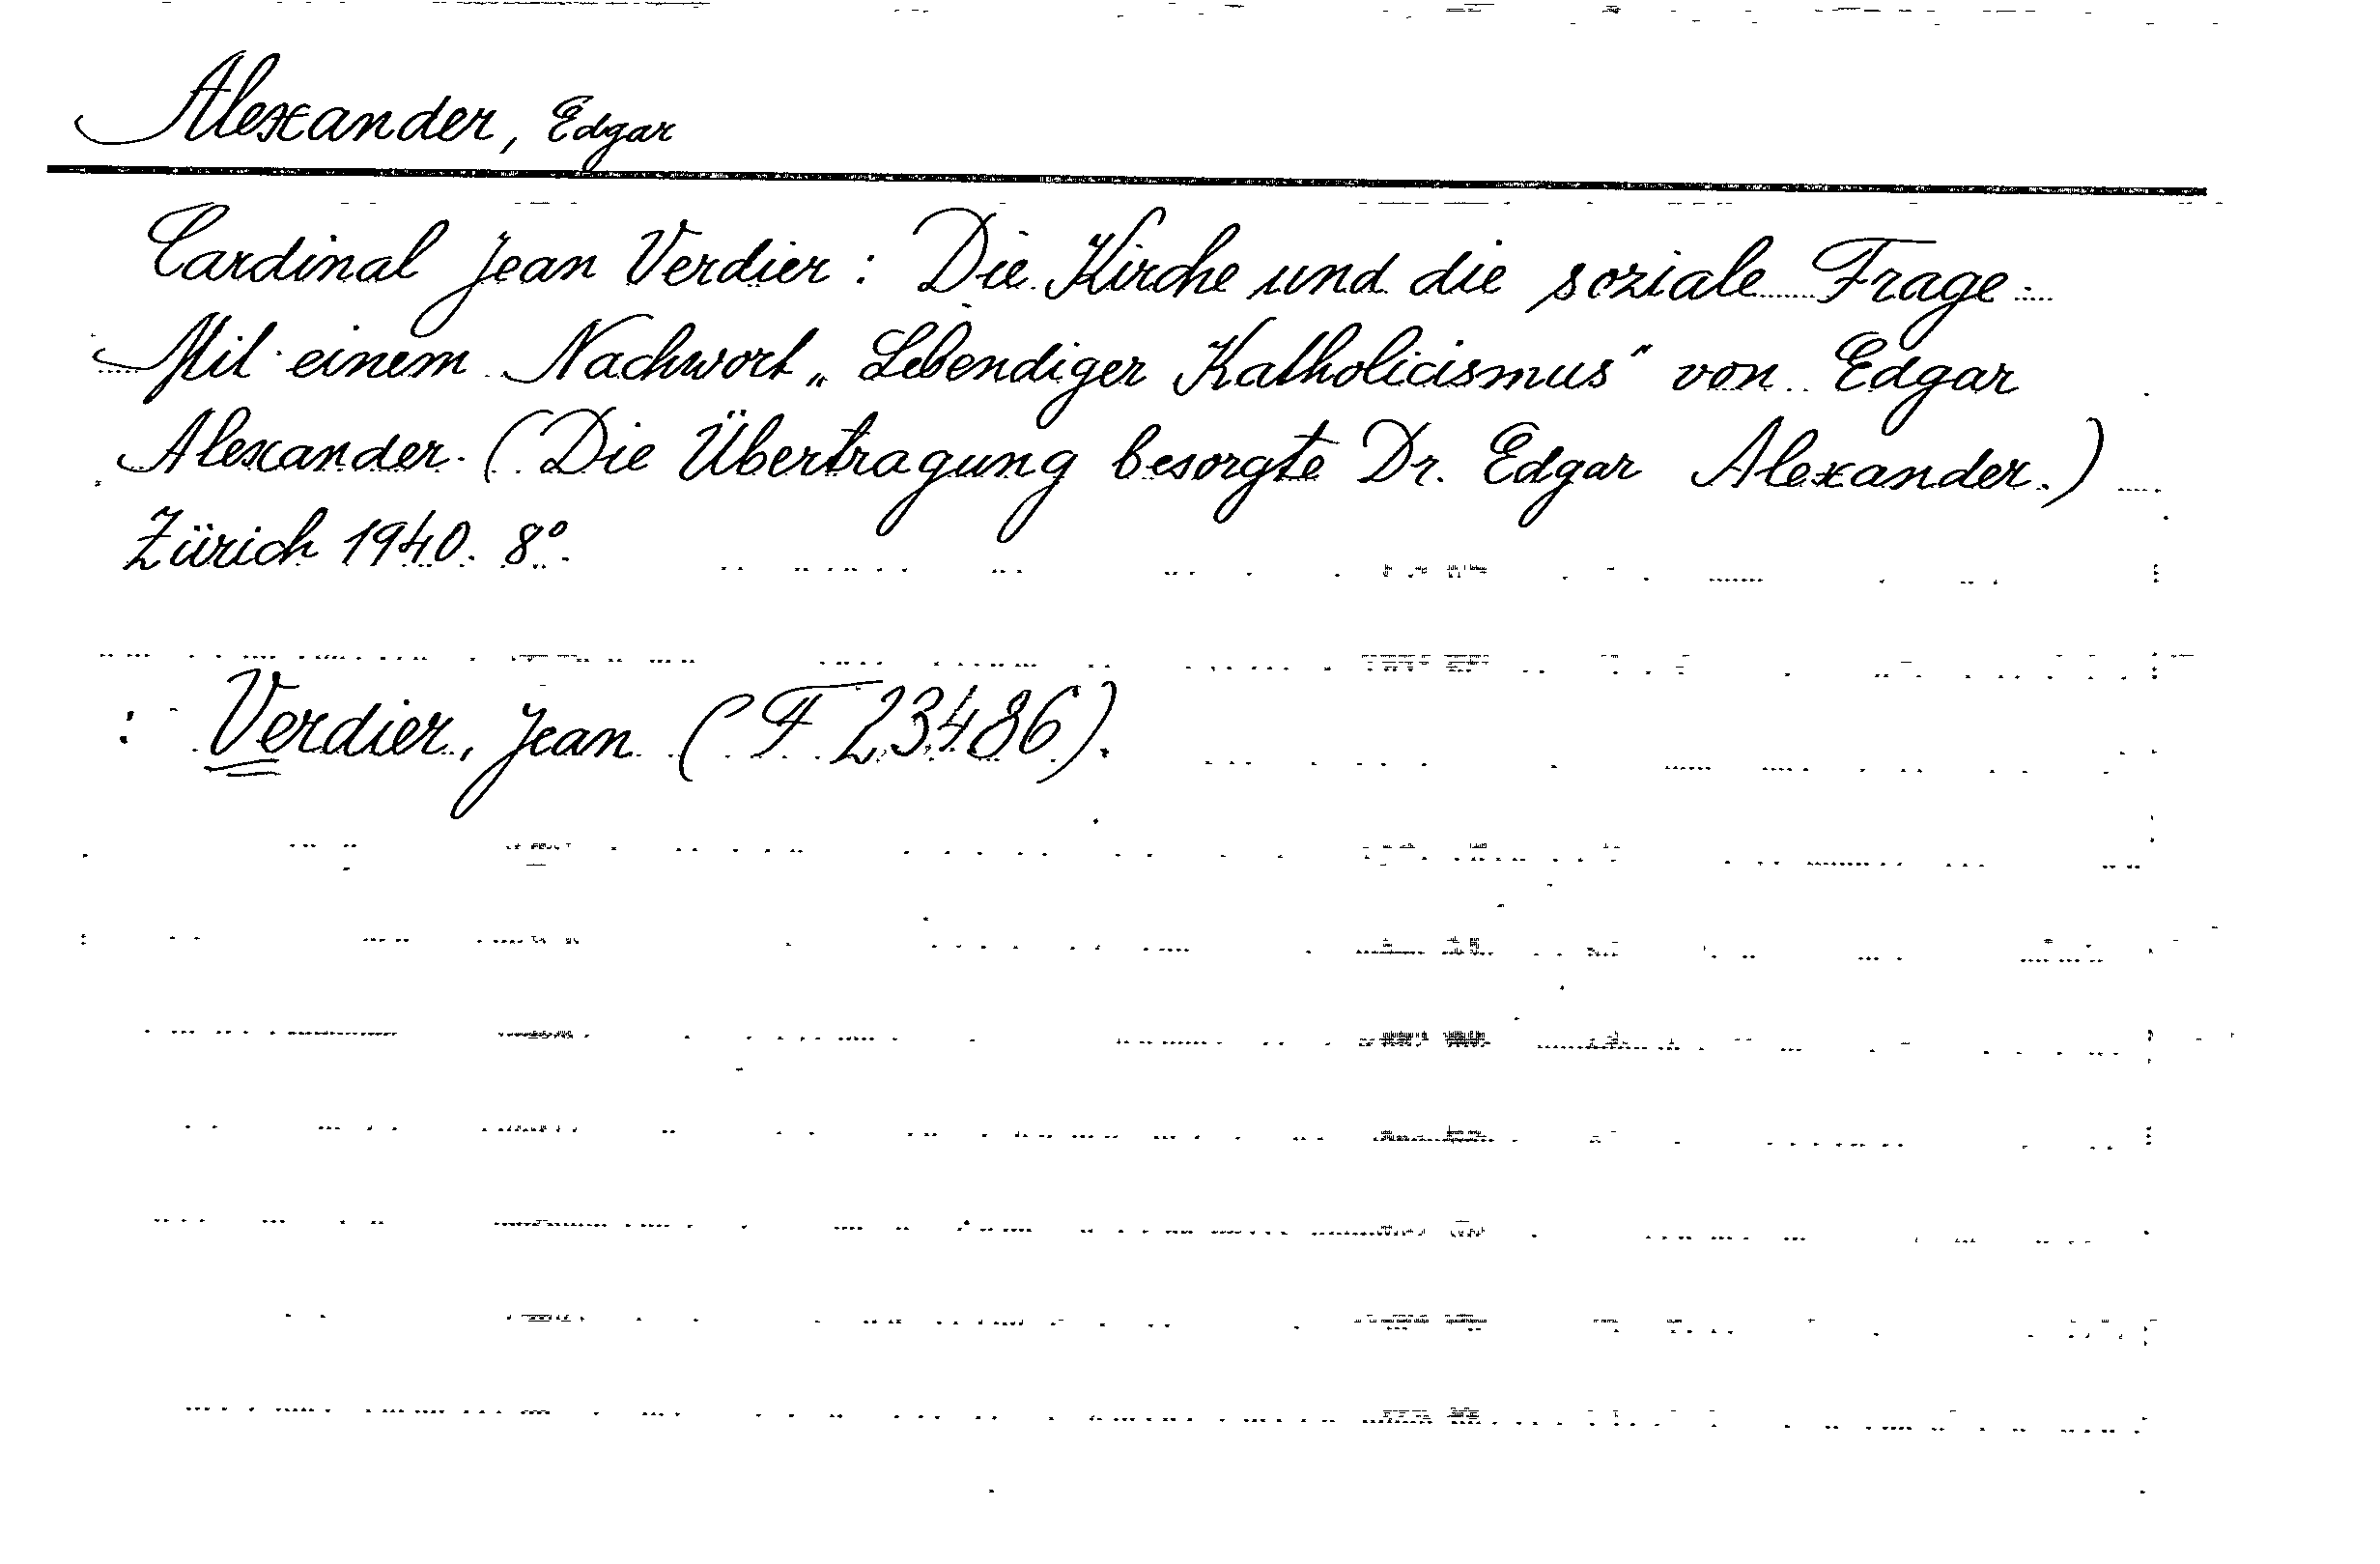 Alexander, Edgar
Cardinal Jean Verdier: Die Kirche und die soziale Frage.
Mit einem Nachwort „Lebendiger Katholicismus" von Edgar
Alexander. (Die Übertragung besorgte Dr. Edgar Alexander.)
Zürich 1940. 8°.
: Verdier, Jean (F 23486).